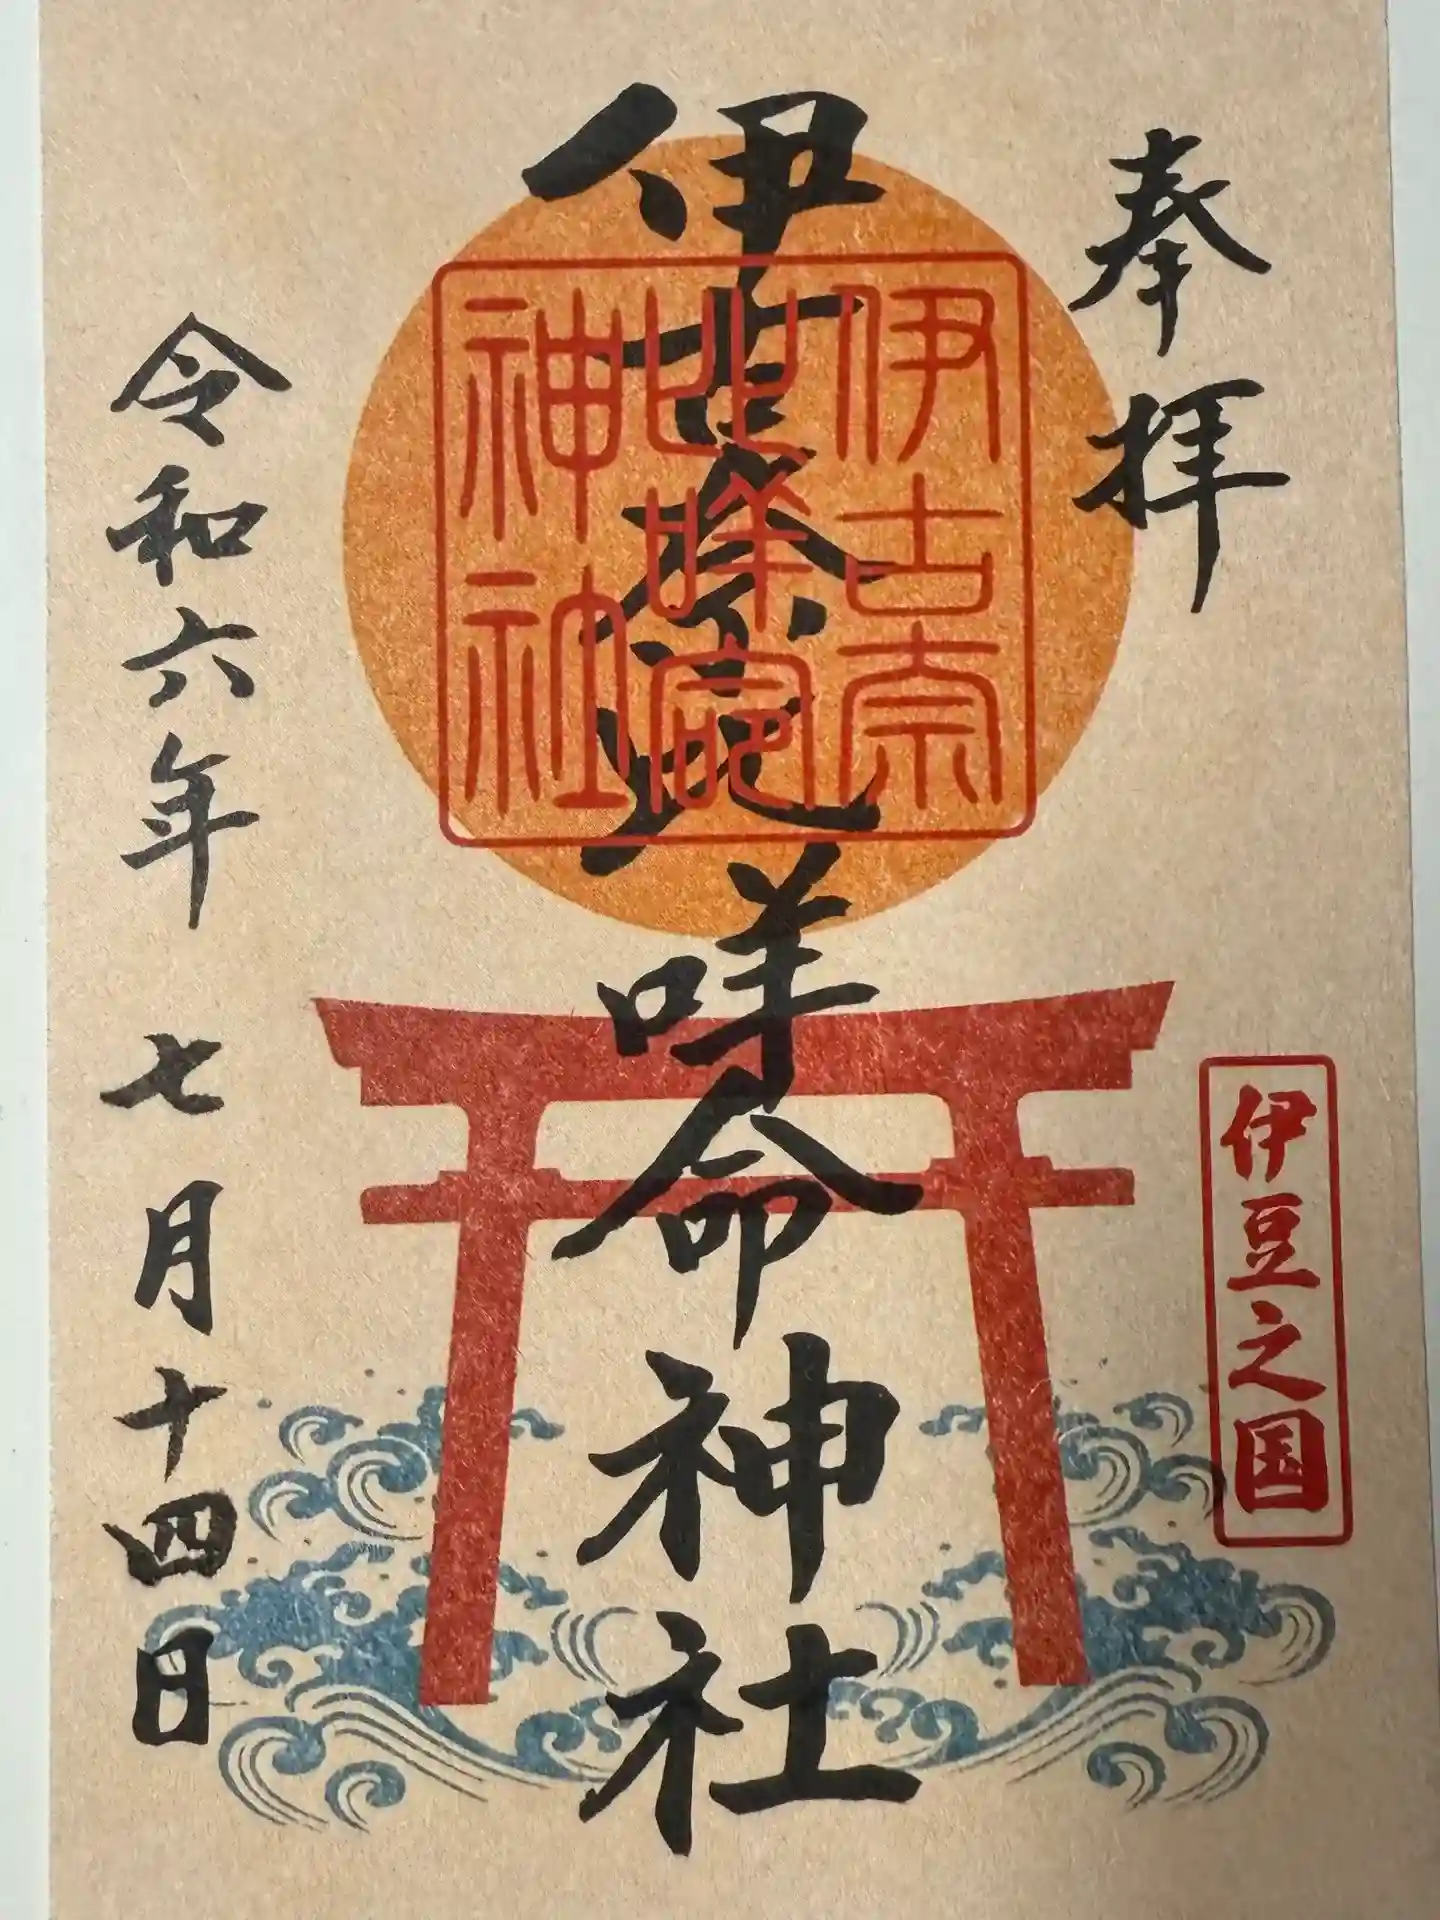 奉拝
伊豆之国
伊古奈比咩命神社
伊古奈
比咩命
神社
令和六年 七月十四日